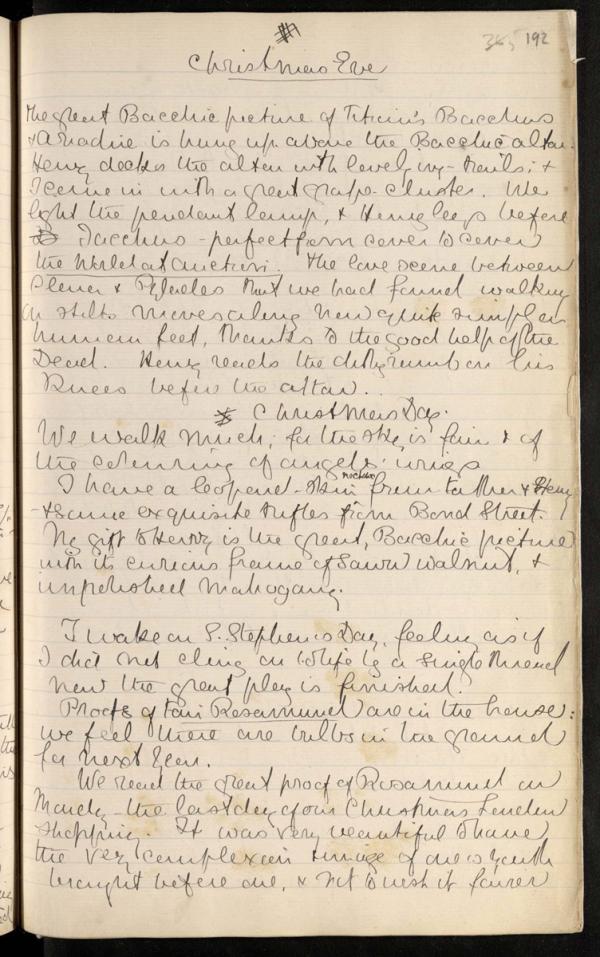 36, 192
Christmas Eve
The great Bacchic picture of Titian's Bacchus
& Ariadne is hung up above the Bacchic altar.
Henry decks the altar with lovely ivy-trails; &
I come in with a great grape-cluster. We
light the pendant lamp, & Henry lays before
Iacchus - perfect from cover to cover
the World at Auction. The love scene between
& Pylades that we had found walking
on stilts moves along now quite simple on
human feet, thanks to the good help of the
Dead. Henry reads the dithyramb on his
Knees before the altar..
Christmas Day.
We walk much; for the sky is fair & of
the colouring of angels' wings
I have a leopard-skin from father & Henry
& some exquisite trifles from Bond Street.
My gift to Henry is the great, Bacchic picture
with its curious frame of sawn walnut, &
unpolished mahogany.
I wake on S. Stephen's Day, feeling as if
I did not cling on to life by a single thread
now the great play is finished.
Proofs of Fair Rosamund are in the house:
we feel there are bulbs in the ground
for next year.
We read the great proof of Rosamund on
Monday - the last day of our Christmas London
shopping. It was very beautiful to have
the very complexion & image of one's youth
brought before one, & not to wish it fairer